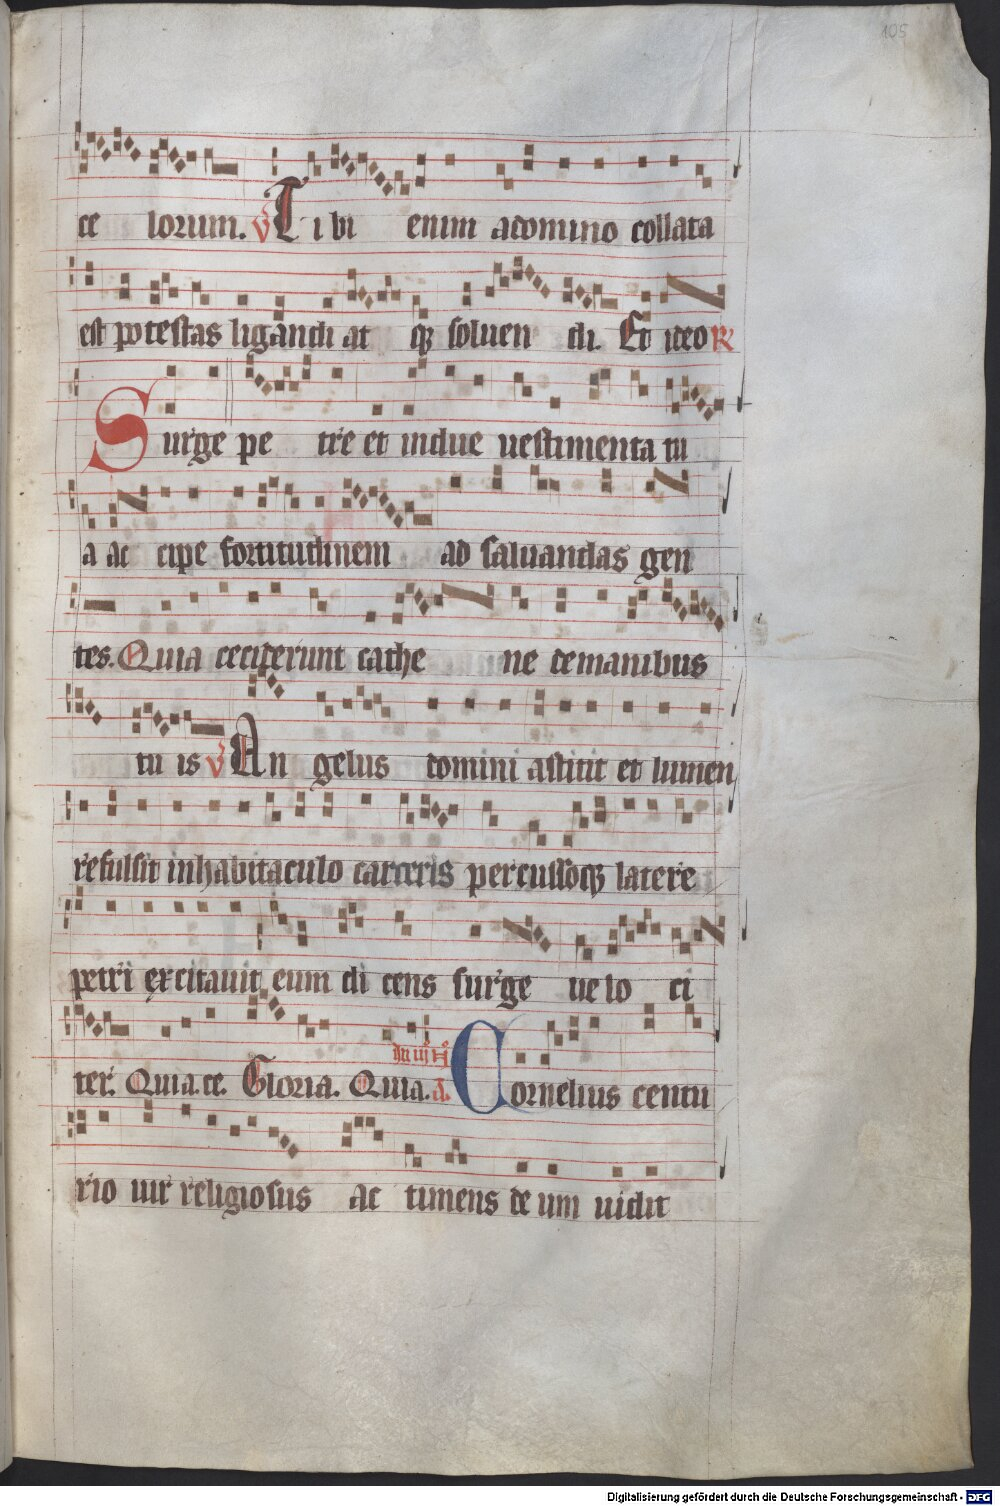 105
ce lorum. V Tibi enim a domino collata
est potestas ligandi at qꝫ soluen di. Et ideo R
Surge pe tre et indue uestimenta tu
a ac cipe fortitudinem ad saluandas gen
tes. Quia ceciderunt cathe ne de manibus
tu is V An gelus domini astitit et lumen
refulsit in habitaculo carceris percussoqꝫ latere
petri excitauit eum di cens surge ue lo ci
ter. Quia. ce. Gloria. Quia. A. Cornelius centu
rio uir religiosus ac timens de um uidit
Digitalisierung gefördert durch die Deutsche Forschungsgemeinschaft - DFG